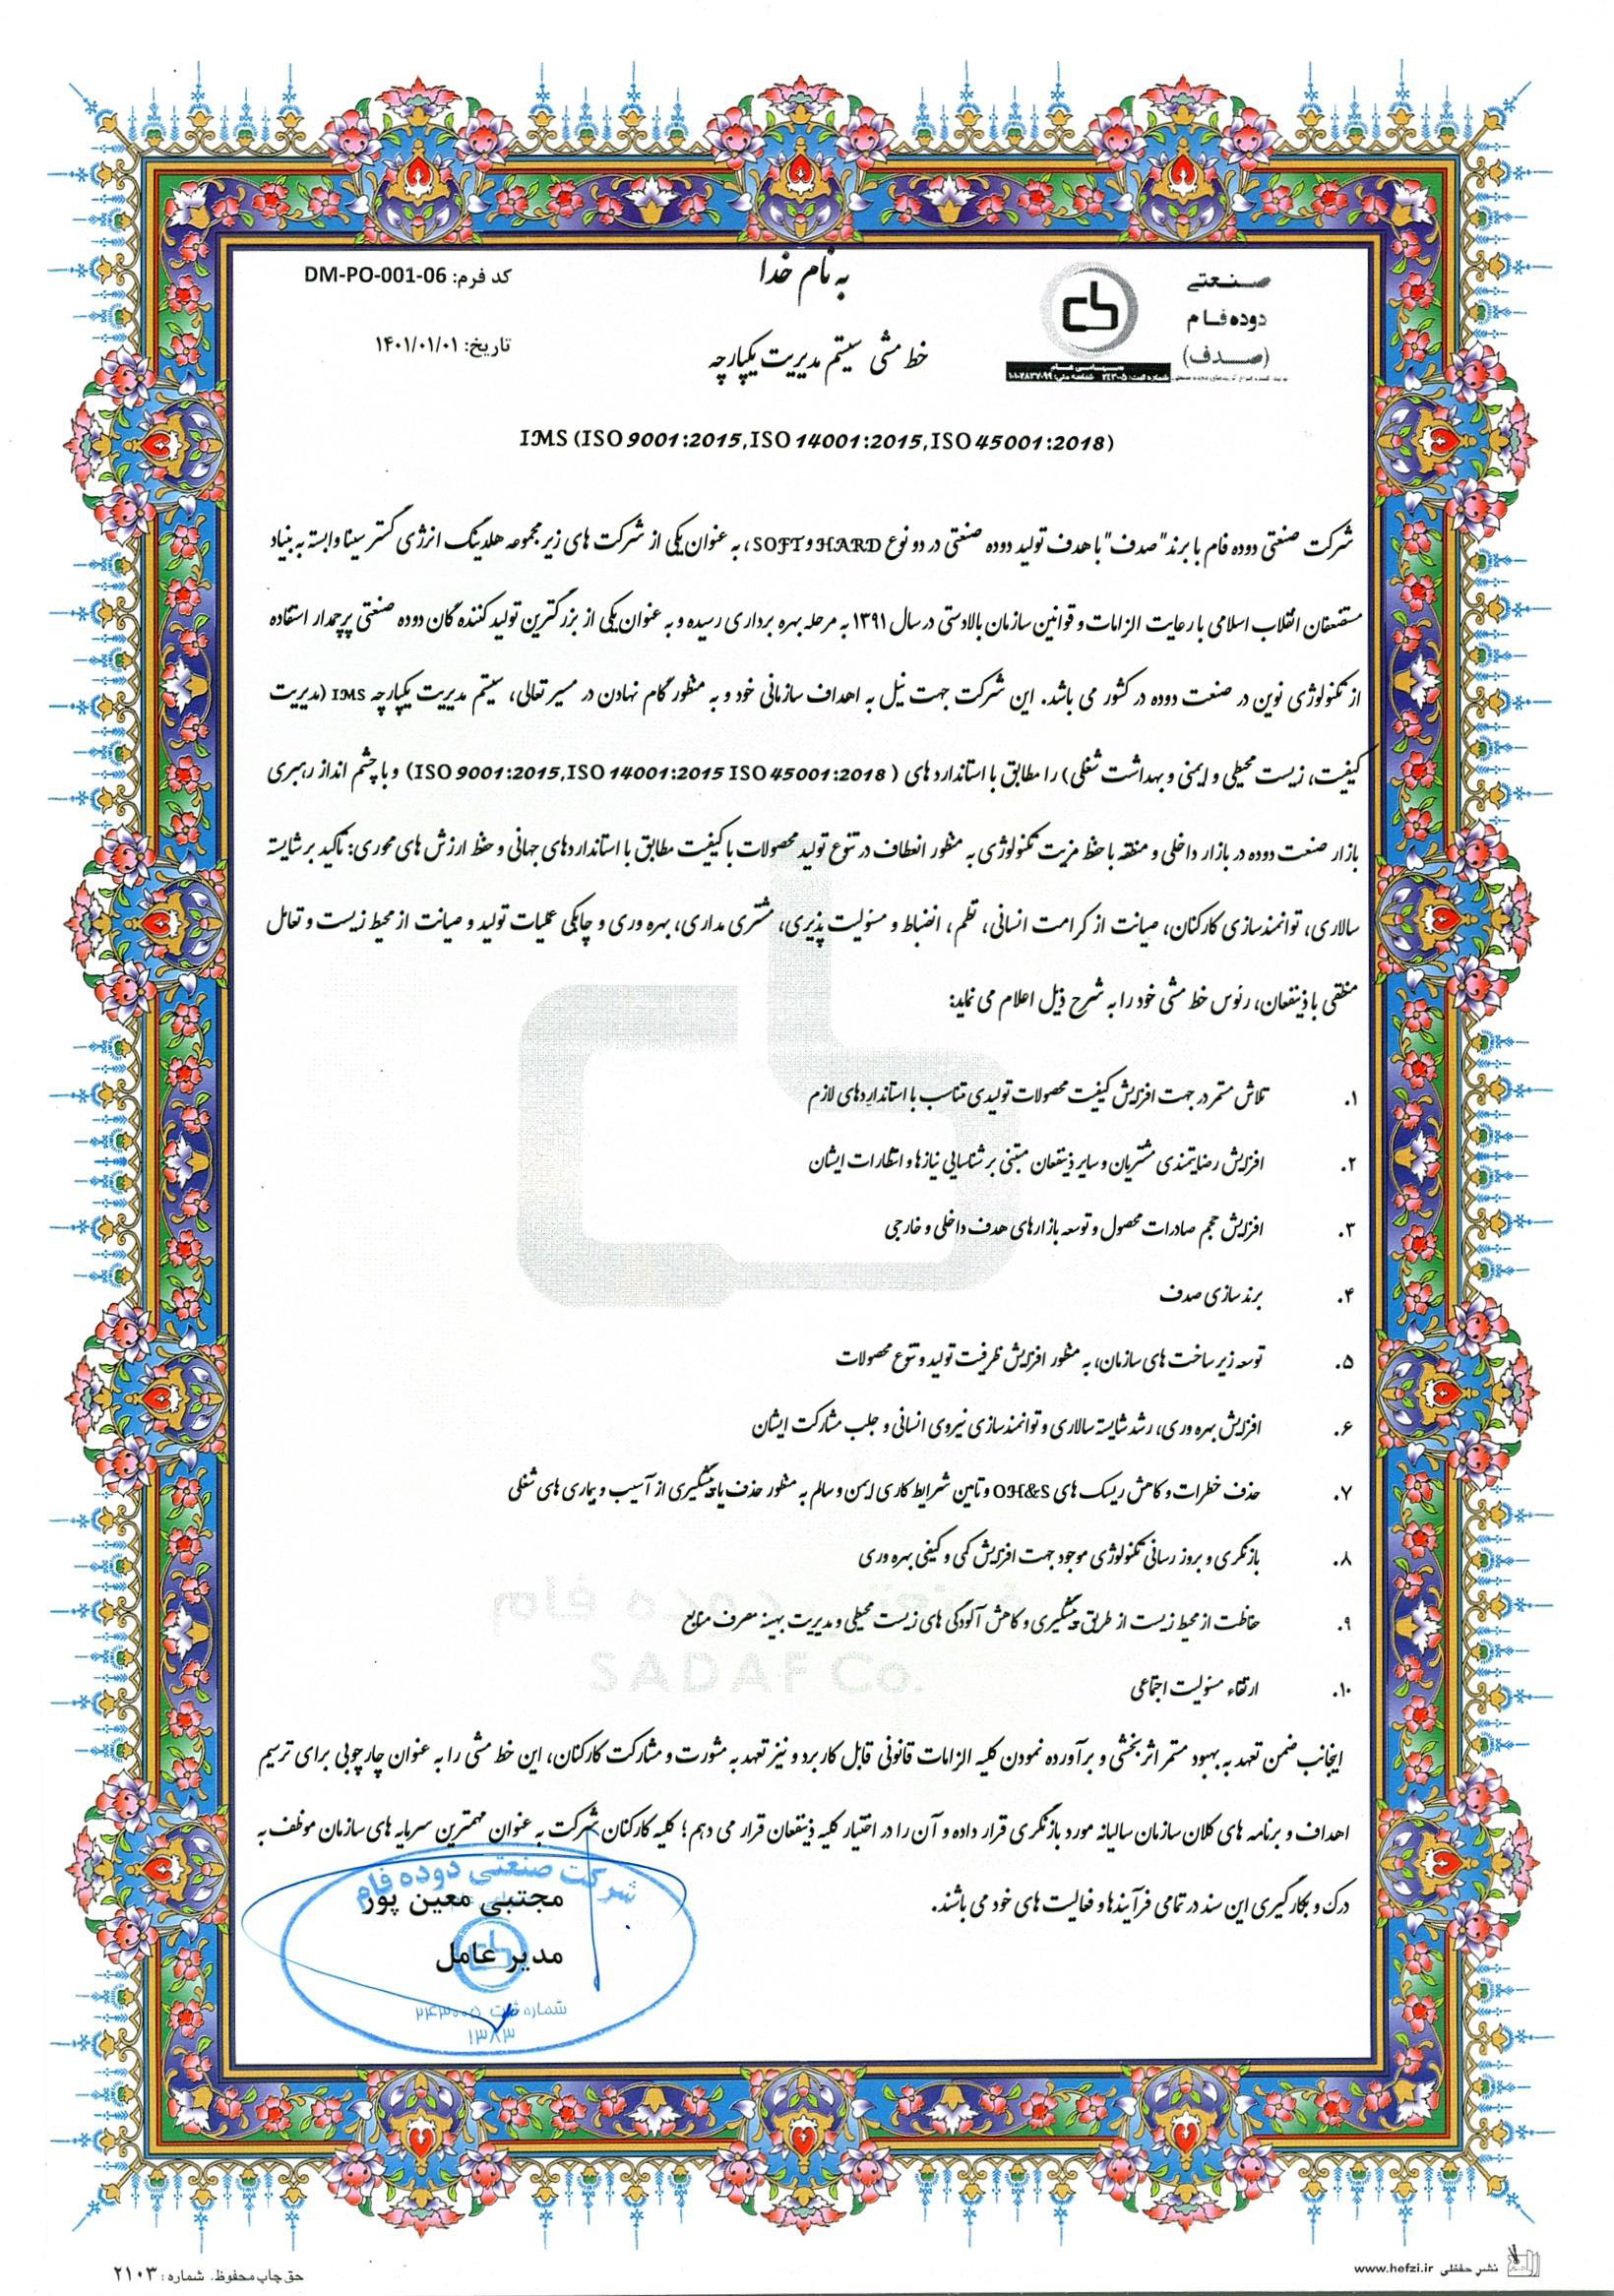 به نام خدا
صنعتی
دوده فام
(صدف)
سهامی عام
کد فرم: DM-PO-001-06
تاریخ: ۱۴۰۱/۰۱/۰۱
خط مشی سیستم مدیریت یکپارچه
IMS (ISO 9001:2015,ISO 14001:2015,ISO 45001:2018)
شرکت صنعتی دوده فام با برند "صدف" با هدف تولید دوده صنعتی در دو نوع HARD و SOFT، به عنوان یکی از شرکت های زیر مجموعه هلدینگ انرژی گستر سینا وابسته به بنیاد
مستضعفان انقلاب اسلامی با رعایت الزامات و قوانین سازمان بالادستی در سال ۱۳۹۱ به مرحله بهره برداری رسیده و به عنوان یکی از بزرگترین تولید کننده گان دوده صنعتی پرچمدار استفاده
از تکنولوژی نوین در صنعت دوده در کشور می باشد. این شرکت جهت نیل به اهداف سازمانی خود و به منظور گام نهادن در مسیر تعالی، سیستم مدیریت یکپارچه IMS (مدیریت
کیفیت، زیست محیطی و ایمنی و بهداشت شغلی) را مطابق با استاندارد های (ISO 9001:2015,ISO 14001:2015 ISO 45001:2018) و با چشم انداز رهبری
بازار صنعت دوده در بازار داخلی و منطقه با حفظ مزیت تکنولوژی به منظور انعطاف در تنوع تولید محصولات با کیفیت مطابق با استاندارد های جهانی و حفظ ارزش های محوری: تاکید بر شایسته
سالاری، توانمندسازی کارکنان، صیانت از کرامت انسانی، نظم، انضباط و مسئولیت پذیری، مشتری مداری، بهره وری و چابکی عملیات تولید و صیانت از محیط زیست و تعامل
منطقی با ذینفعان، رئوس خط مشی خود را به شرح ذیل اعلام می نماید:
۱. تلاش مستمر در جهت افزایش کیفیت محصولات تولیدی متناسب با استانداردهای لازم
۲. افزایش رضایتمندی مشتریان و سایر ذینفعان مبتنی بر شناسایی نیازها و انتظارات ایشان
۳. افزایش حجم صادرات محصول و توسعه بازارهای هدف داخلی و خارجی
۴. برندسازی صدف
۵. توسعه زیر ساخت های سازمان، به منظور افزایش ظرفیت تولید و تنوع محصولات
۶. افزایش بهره وری، رشد شایسته سالاری و توانمندسازی نیروی انسانی و جلب مشارکت ایشان
۷. حذف خطرات و کاهش ریسک های OH&S و تامین شرایط کاری ایمن و سالم به منظور حذف یا پیشگیری از آسیب و بیماری های شغلی
۸. بازنگری و بروز رسانی تکنولوژی موجود جهت افزایش کمی و کیفی بهره وری
۹. حفاظت از محیط زیست از طریق پیشگیری و کاهش آلودگی های زیست محیطی و مدیریت بهینه مصرف منابع
SADAF Co.
۱۰. ارتقاء مسئولیت اجتماعی
اینجانب ضمن تعهد به بهبود مستمر اثربخشی و برآورده نمودن کلیه الزامات قانونی قابل کاربرد و نیز تعهد به مشورت و مشارکت کارکنان، این خط مشی را به عنوان چارچوبی برای ترسیم
اهداف و برنامه های کلان سازمان سالیانه مورد بازنگری قرار داده و آن را در اختیار کلیه ذینفعان قرار می دهم؛ کلیه کارکنان شرکت به عنوان مهمترین سرمایه های سازمان موظف به
درک و بکارگیری این سند در تمامی فرآیندها و فعالیت های خود می باشند.
شرکت صنعتی دوده فام
مجتبی معین پور
مدیر عامل
شماره ثبت ۲۴۳۰۰۵
۱۳۸۳
نشر حفظی www.hefzi.ir
حق چاپ محفوظ. شماره: ۲۱۰۳